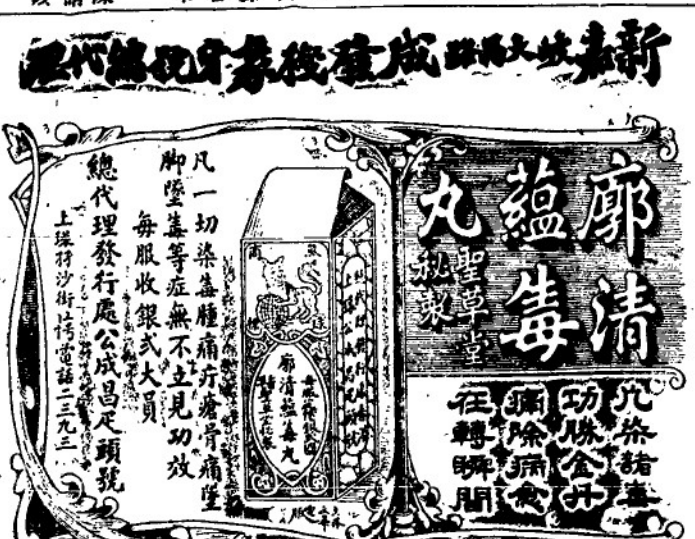 新嘉坡大馬路成發棧象牙梘總代理
廓清
蘊毒
丸
聖草堂
秘製
凡染諸毒
功勝金丹
痛除病愈
在轉瞬間
商標
廓清蘊毒丸
凡一切染毒腫痛疔瘡骨痛墜
脚墜毒等症無不立見功效
每服收銀弍大員
總代理發行處公成昌疋頭號
上環孖沙街 電話二三九三